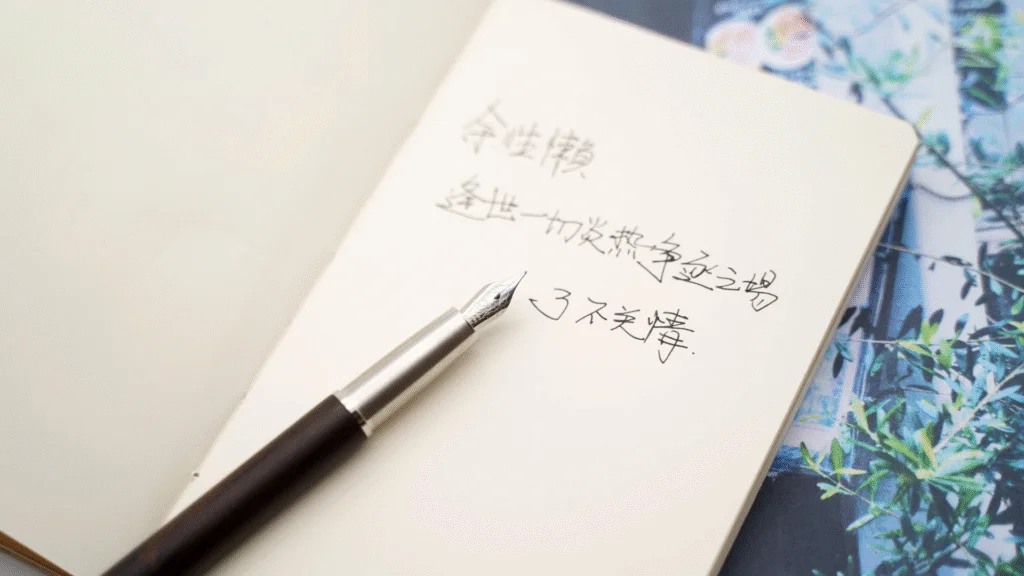 余性懒
逢世一切炎热争逐之場
了不关情.